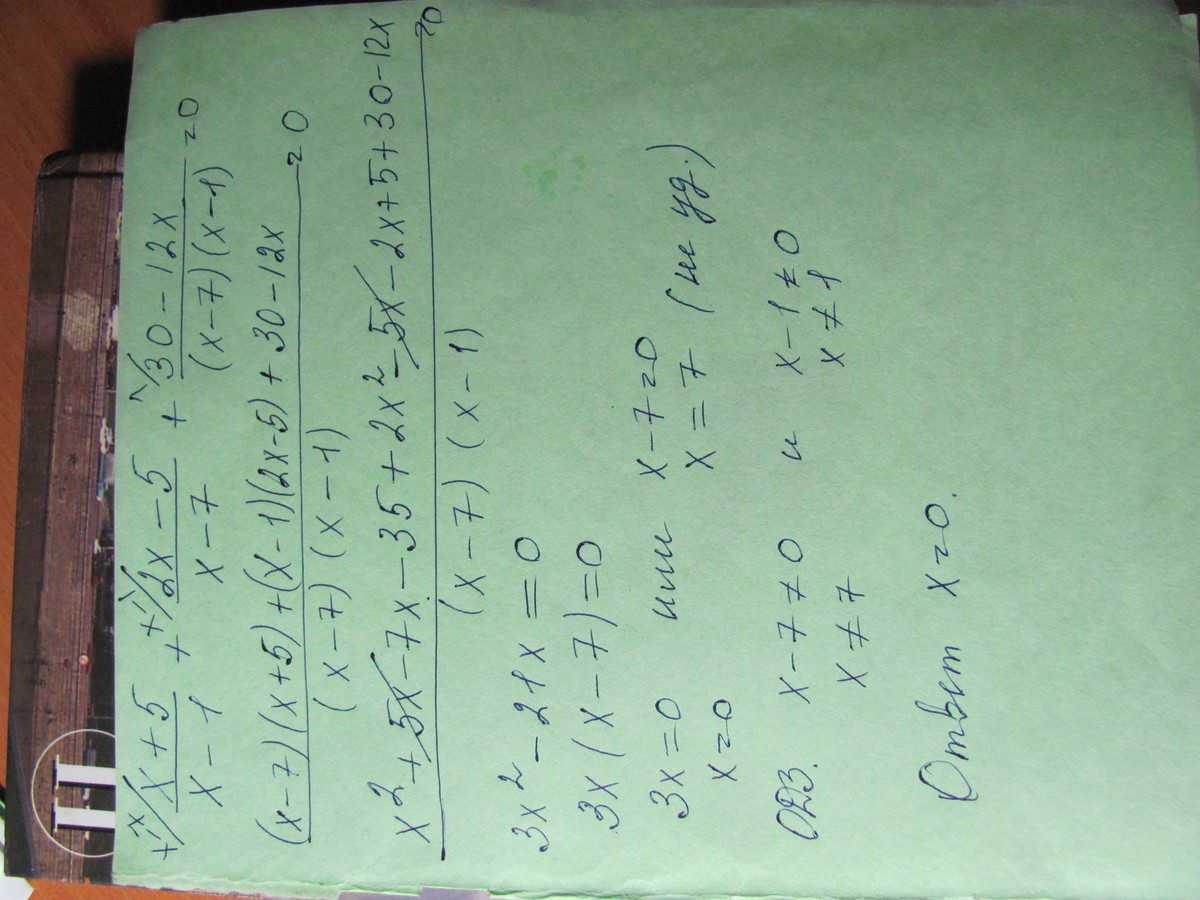 x+5/x-1 + 2x-5/x-7 + 30-12x/(x-7)(x-1) = 0
(x-7)(x+5)+(x-1)(2x-5)+30-12x/(x-7)(x-1) = 0
x²+5x-7x-35+2x²-5x-2x+5+30-12x/(x-7)(x-1) = 0
3x²-21x=0
3x(x-7)=0
3x=0 или x-7=0
x=0 x=7 (не уд.)
ОДЗ. x-7≠0 и x-1≠0
x≠7 x≠1
Ответ x=0.